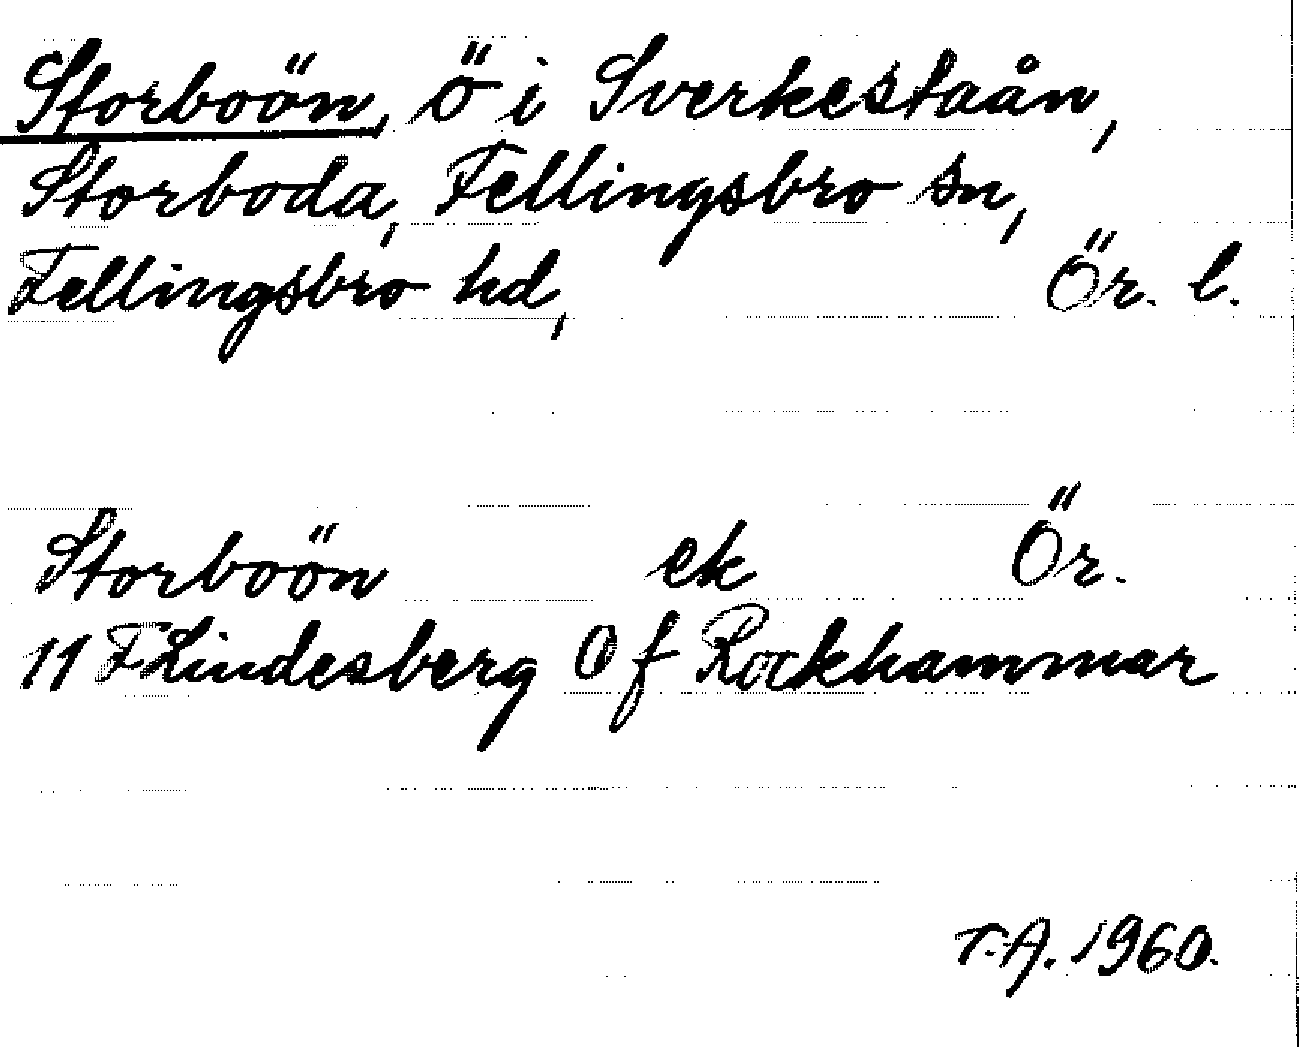 Storboön, ö i Sverkestaån,
Storboda, Fellingsbro sn,
Fellingsbro hd, Ör. l.
Storboön ek Ör.
11 F Lindesberg 0 f Rockhammar
T.A. 1960.